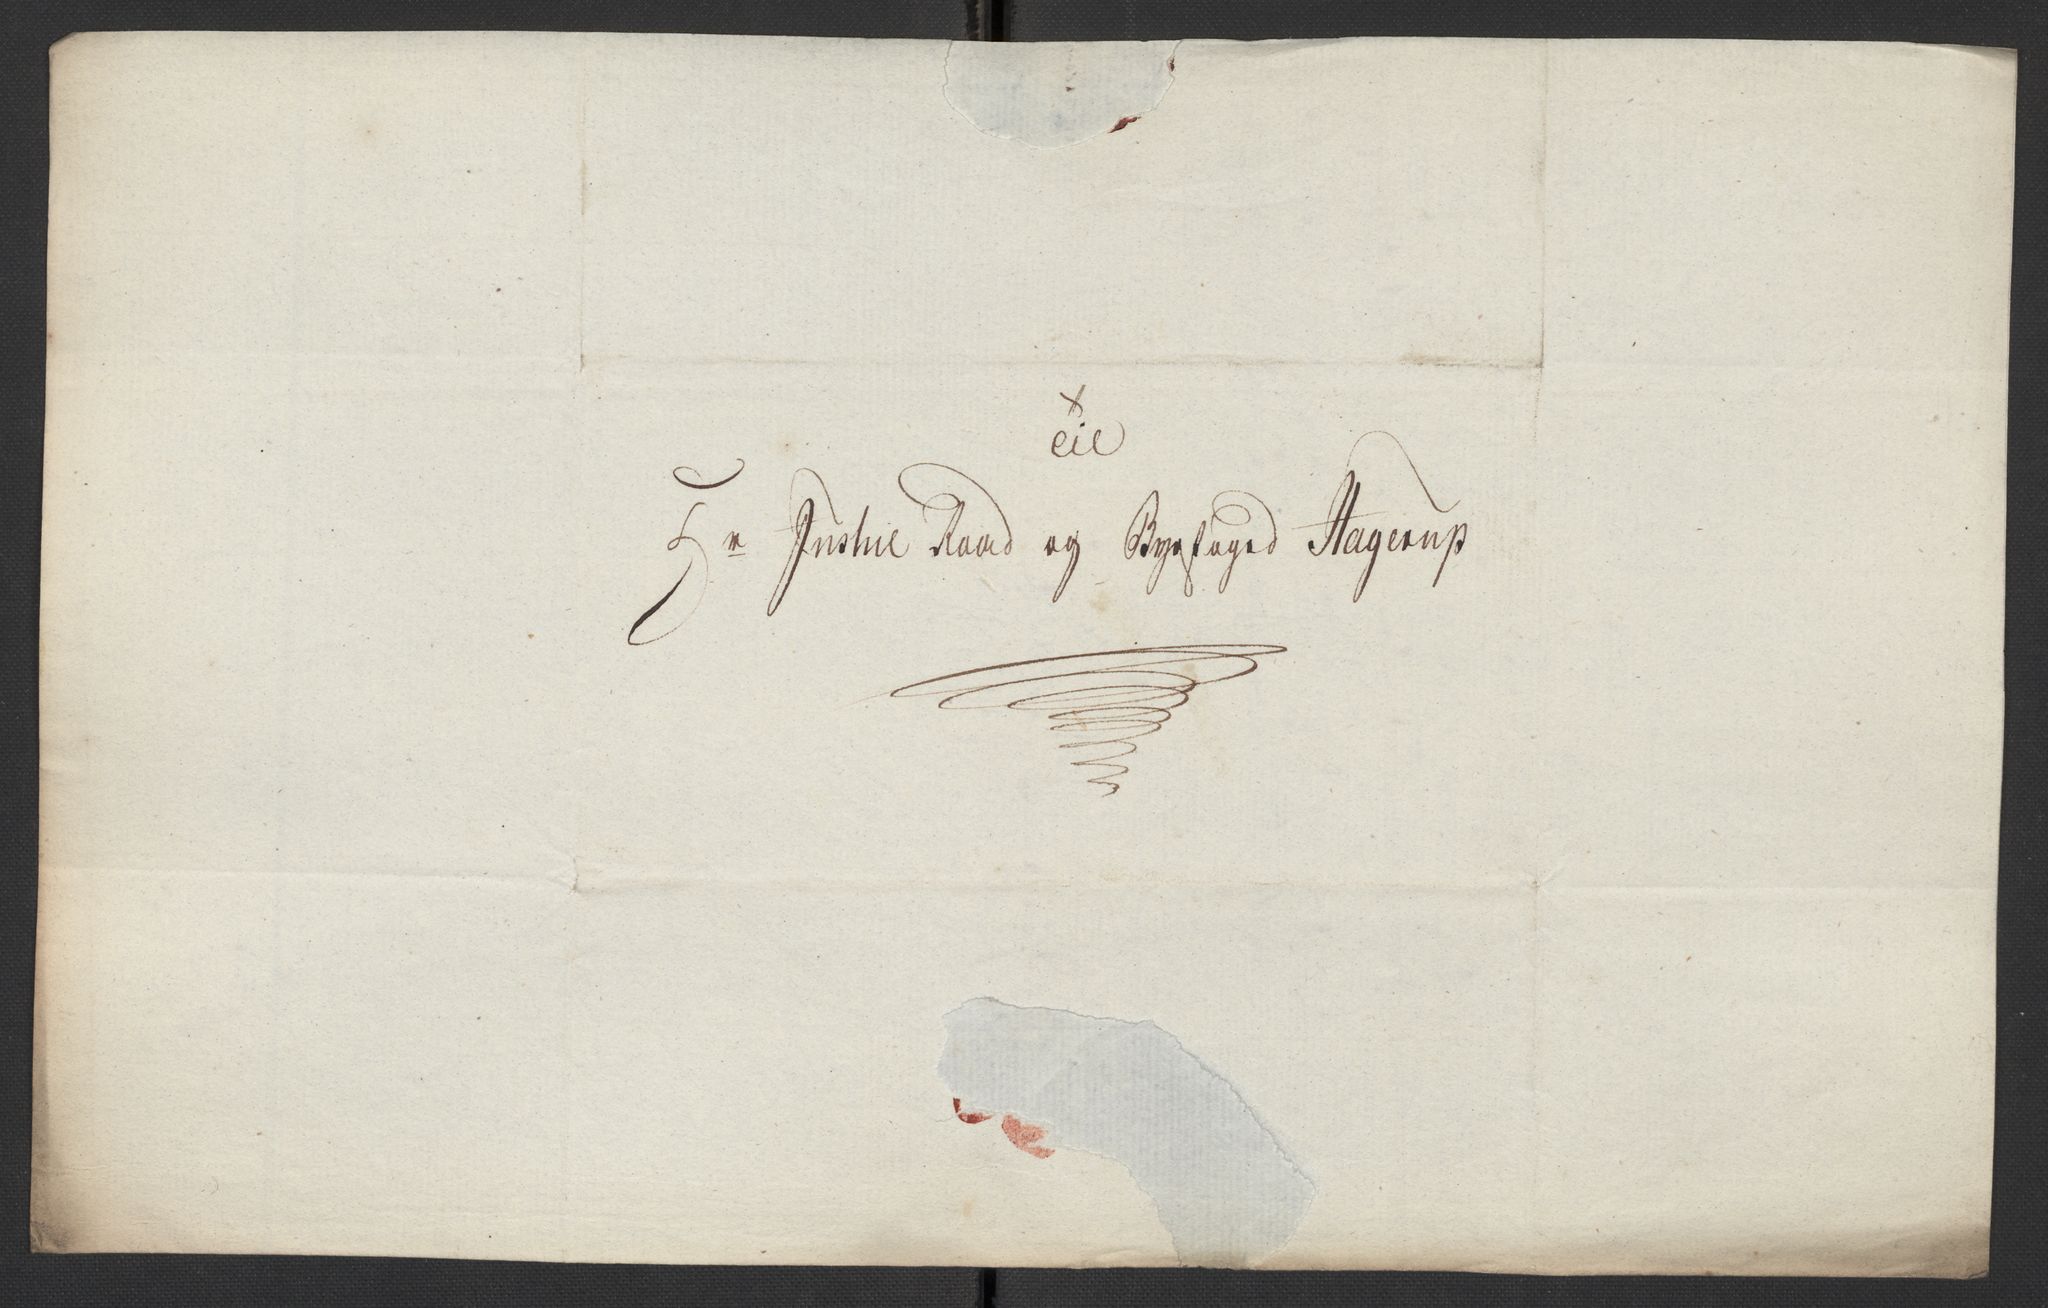 Til
Hr Justic Raad og Byefoged Hagerup